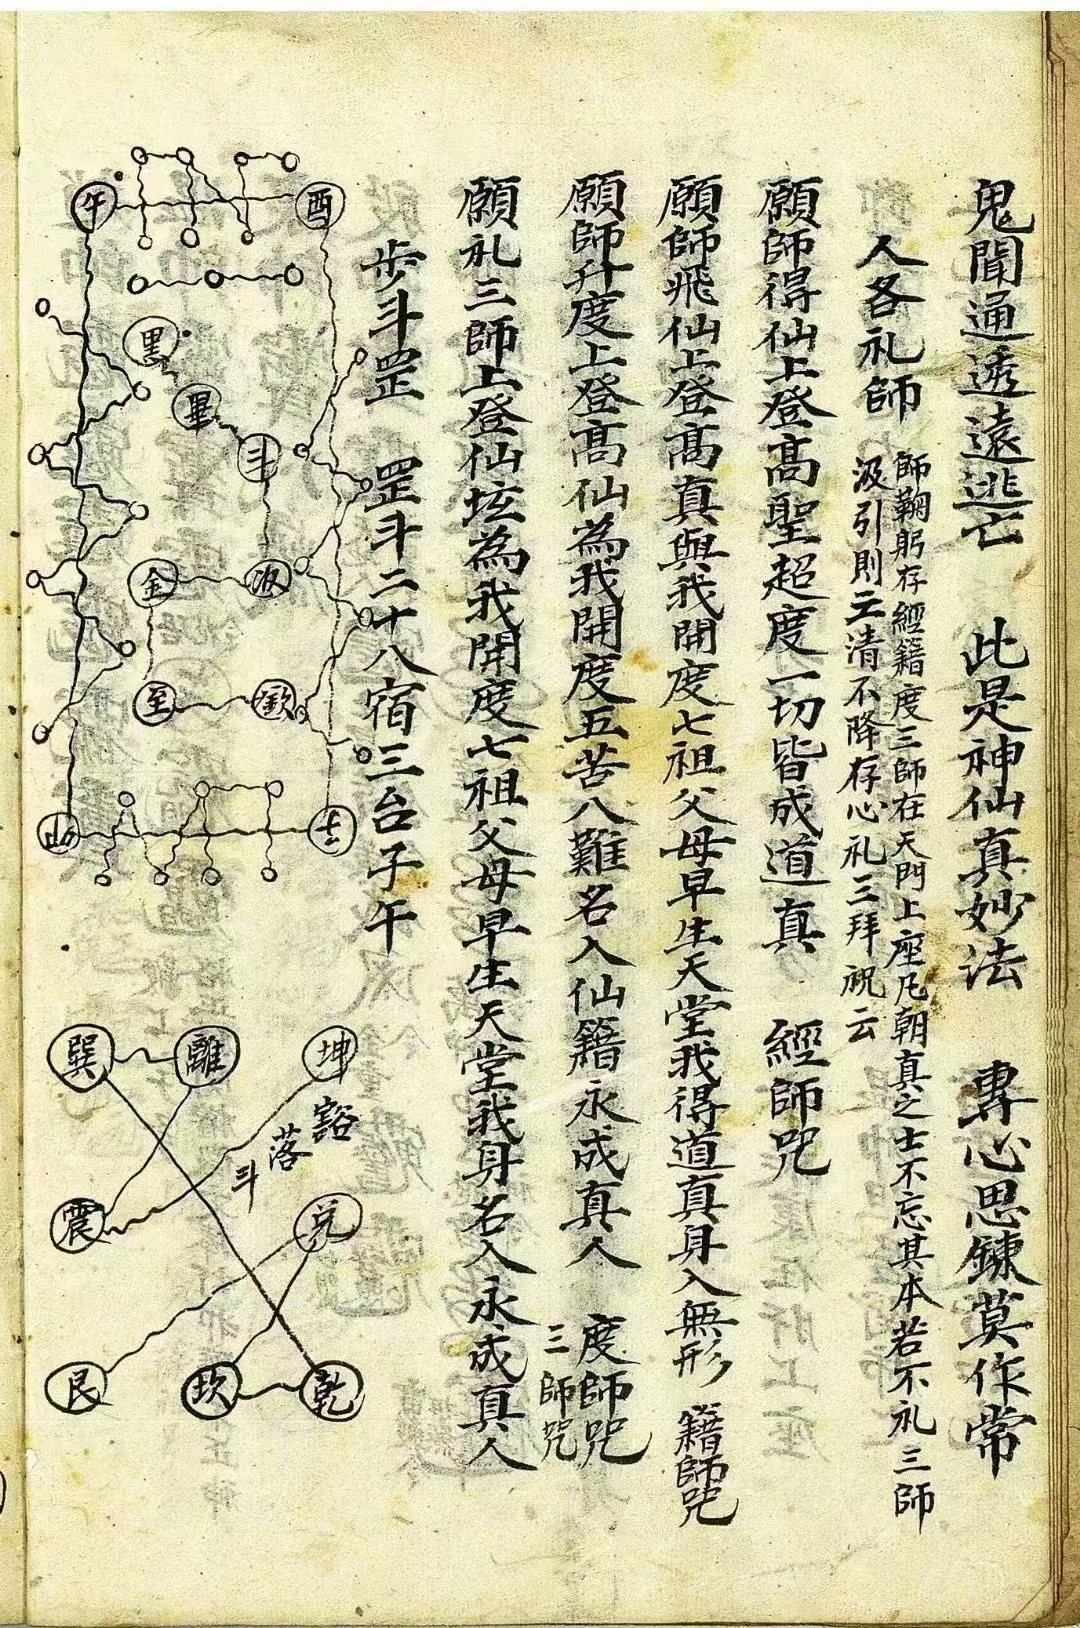 鬼聞通透遠逃亡 此是神仙真妙法 專心思鍊莫作常
人各礼師
師鞠躬存經籍度三師在天門上座凡朝真之士不忘其本若不礼三師
汲引則三清不降存心礼三拜祝云
願師得仙上登髙聖超度一切皆成道真 經師咒
願師飛仙上登髙真與我開度七祖父母早生天堂我得道真身入無形 籍師咒
願師升度上登髙仙為我開度五苦八難名入仙籍永成真人 度師咒
三師咒
願礼三師上登仙坛為我開度七祖父母早生天堂我身名入永成真人
步斗罡 罡斗二十八宿三台子午
酉
午
畢
斗
金
至
巽
離
坤
豁
落
斗
震
兑
艮
坎
乾